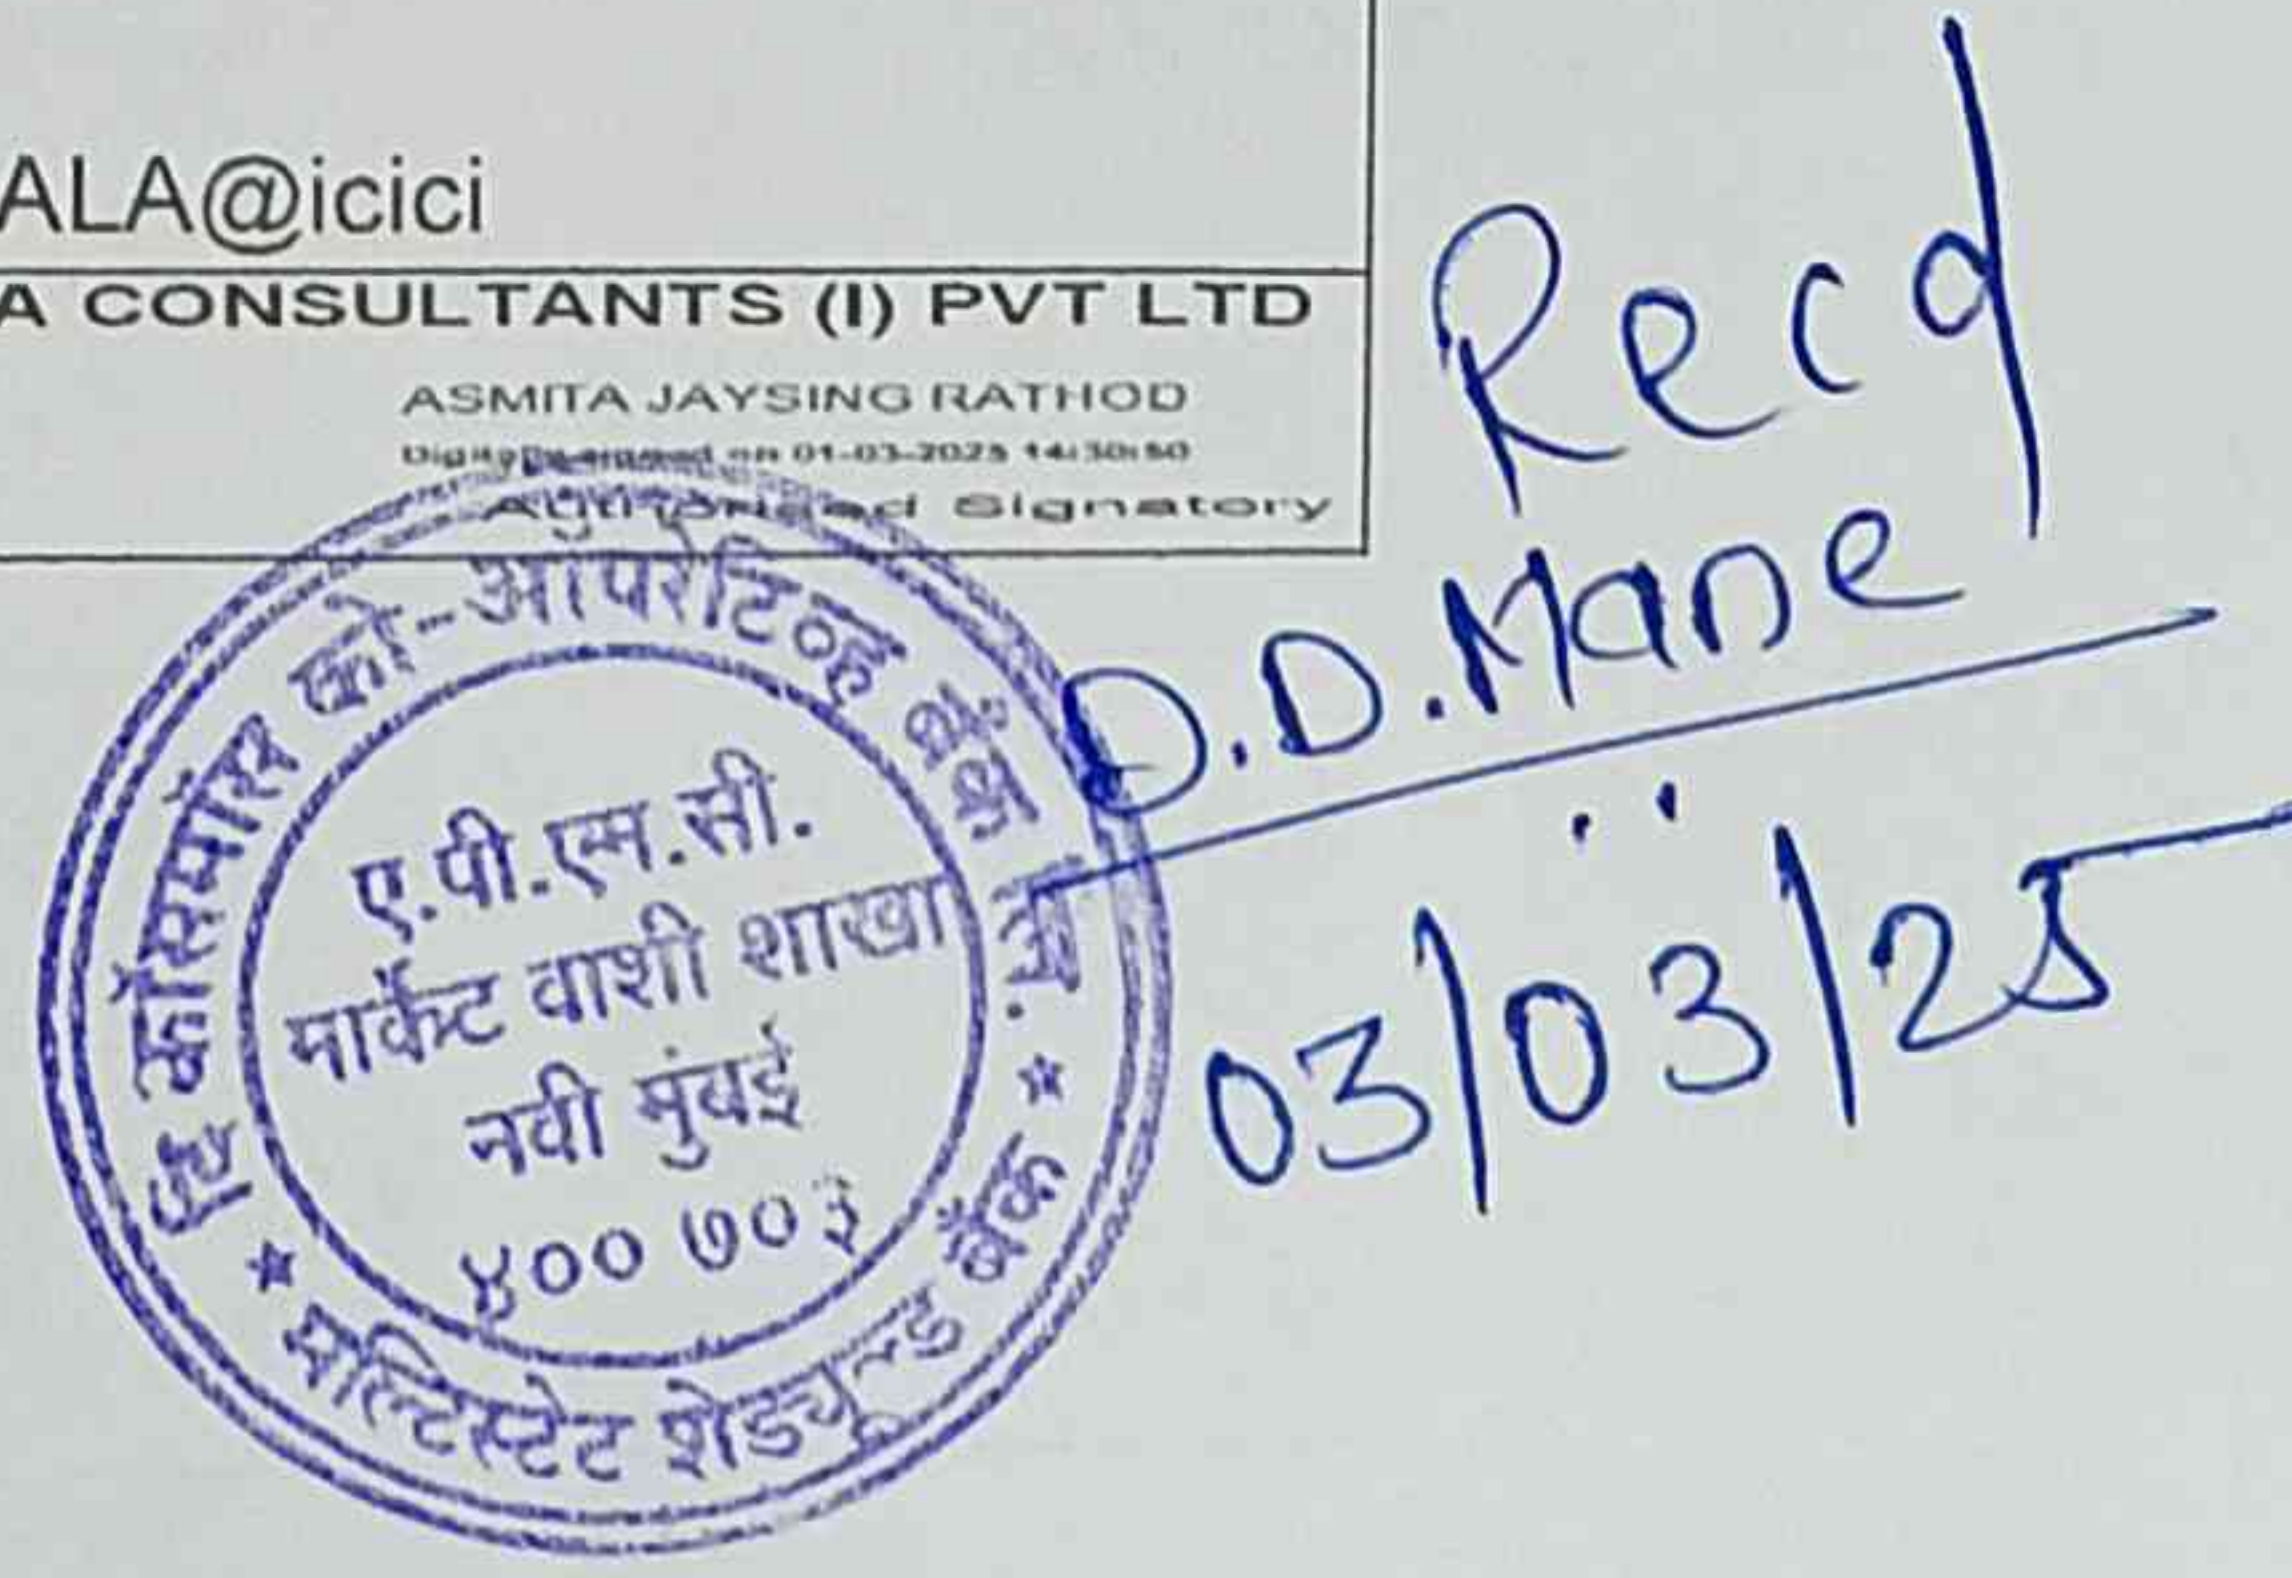 ALA@icici
A CONSULTANTS (I) PVT LTD
ASMITA JAYSING RATHOD
Digitally signed on 01-03-2025 14:30:50
Authorised Signatory
Recd
D.D.Mane
03/03/25
दि कॉसमॉस को-ऑपरेटिव्ह बँक लि.
ए.पी.एम.सी.
मार्केट वाशी शाखा
नवी मुंबई
४०० ७०३
मल्टिस्टेट शेड्युल्ड बँक